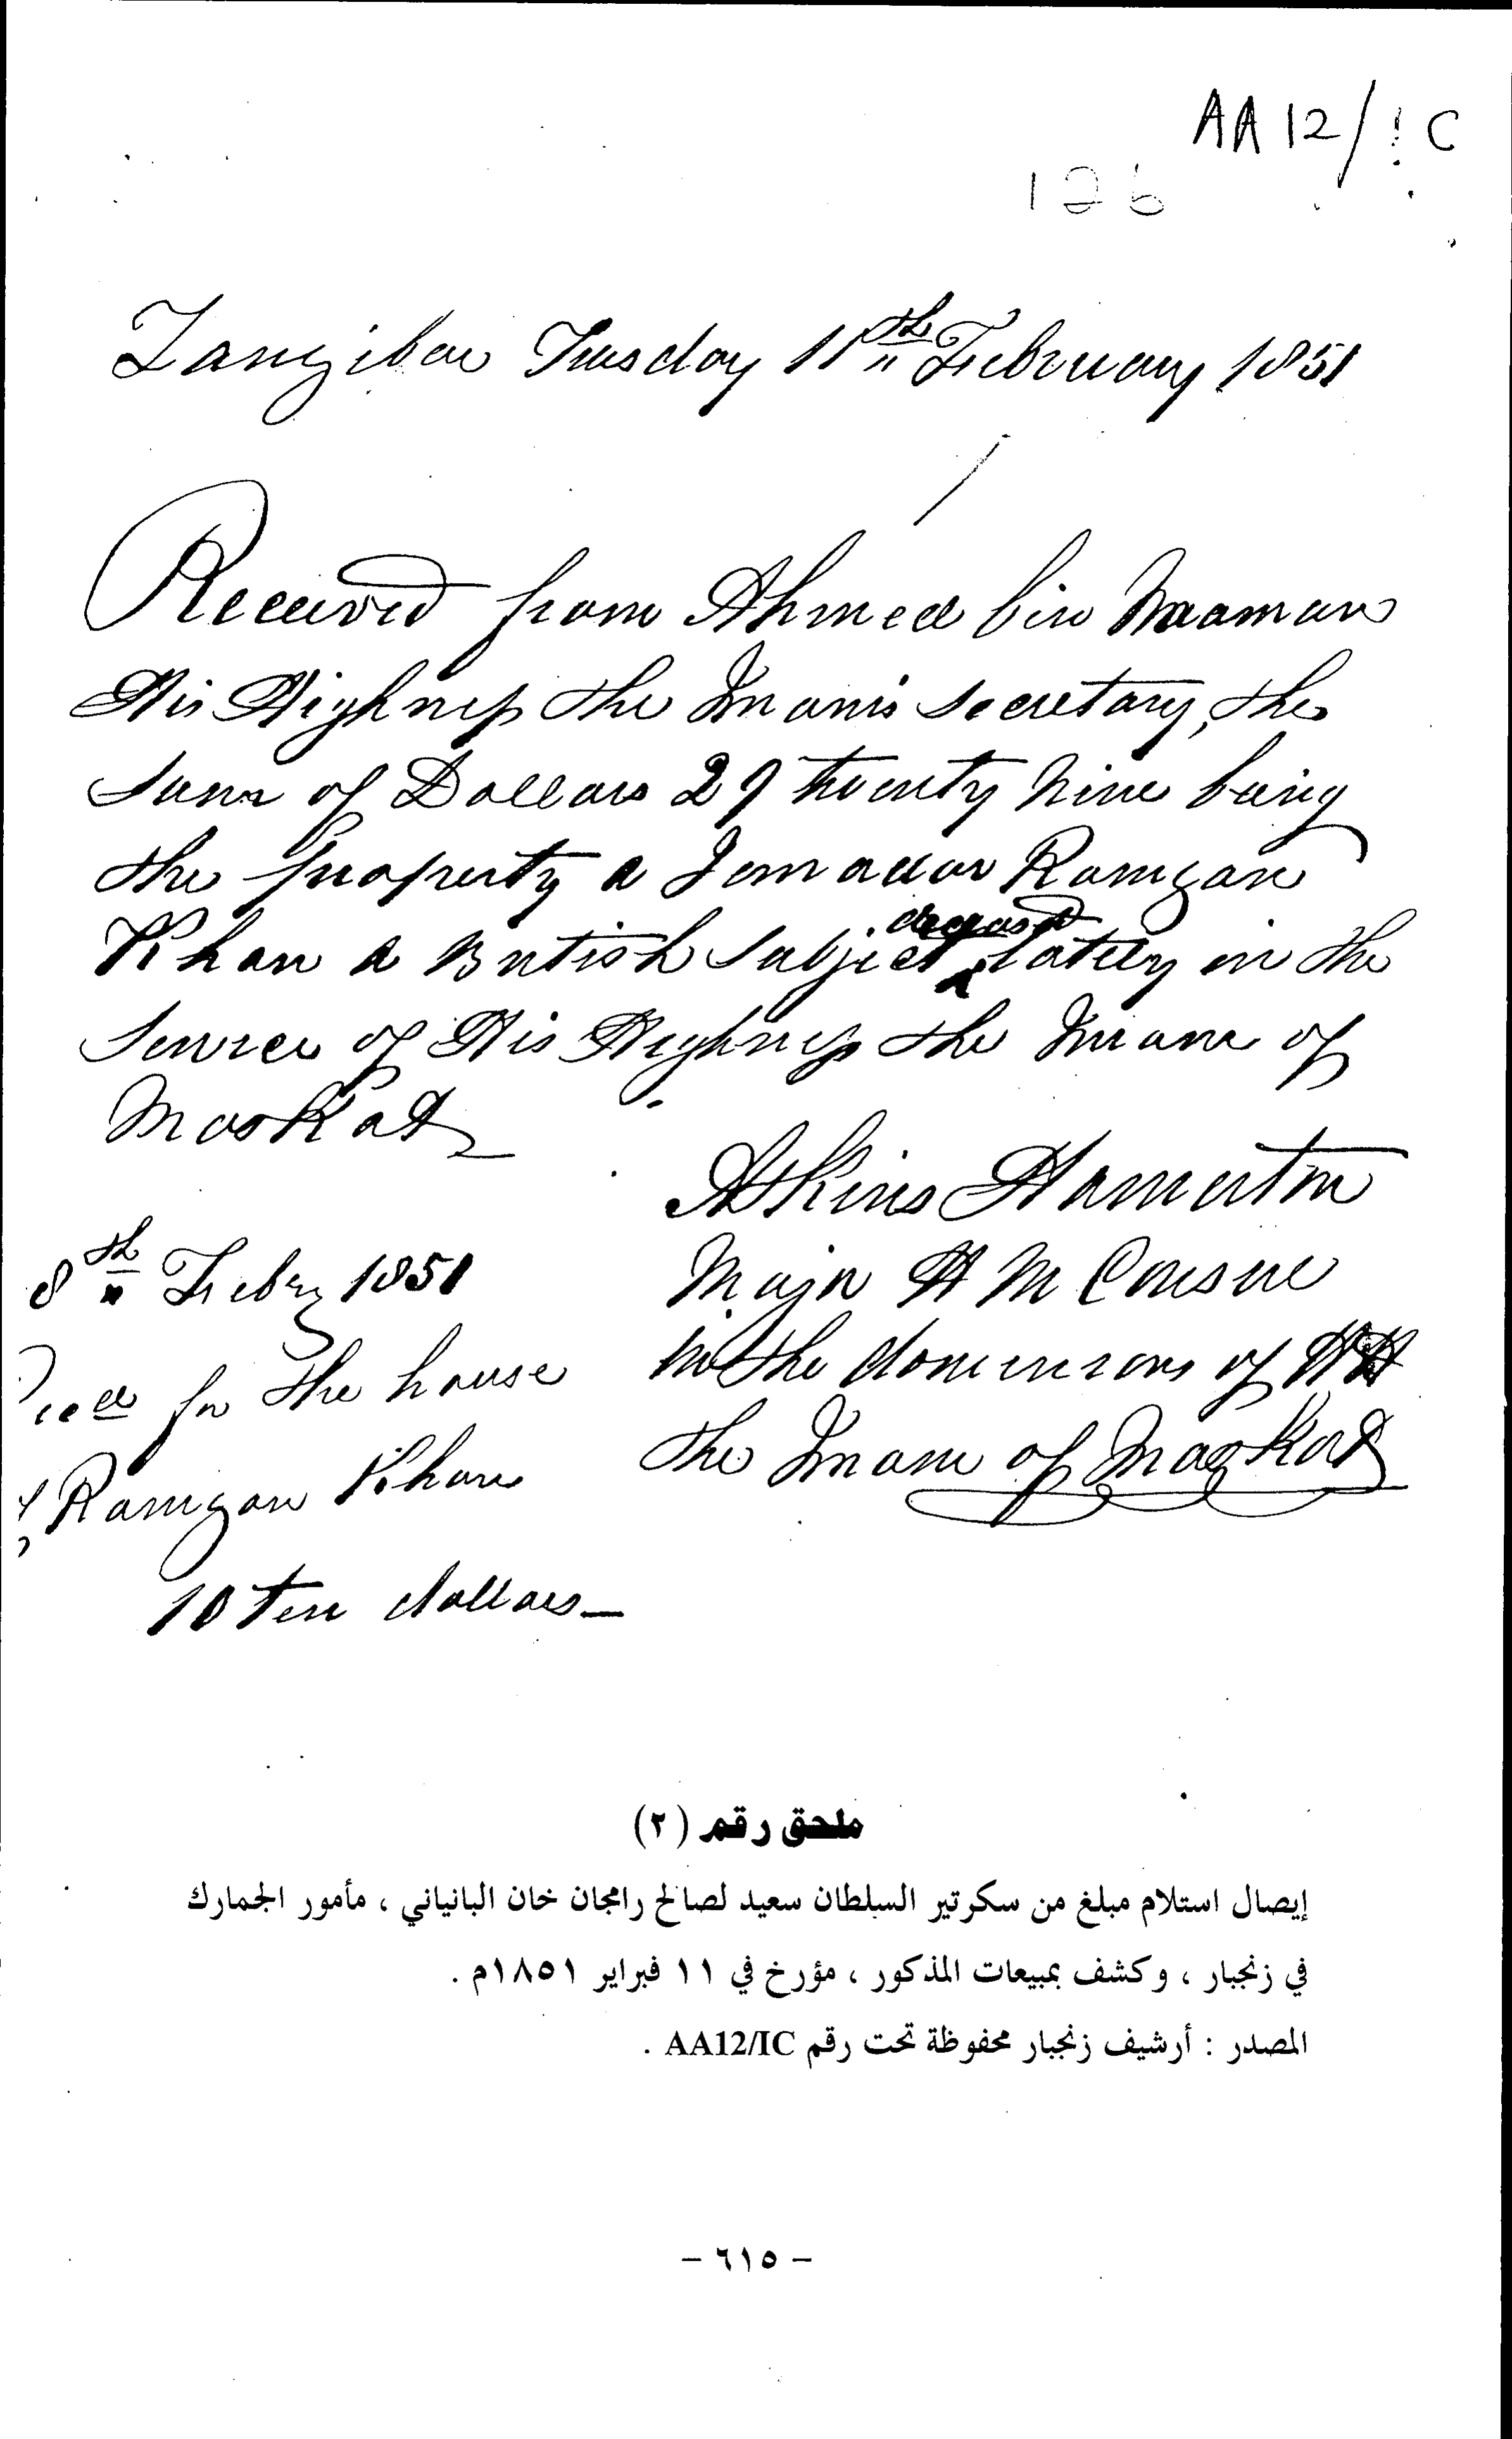 AA 12/1C
126
Zanzibar Tuesday 11th February 1851
Received from Ahmed bin Naaman
His Highness the Imam's Secretary, the
Sum of Dollars 29 twenty nine being
the property a Jemadar Ramzan
Khan a British Subject deceased lately in the
Service of His Highness the Imam of
Maskat
Atkins Hamerton
Major H M Consul
in the dominions of HH
the Imam of Maskat
8th Feby 1851
for the house
Ramzan Khan
10 Ten dollars—
ملحق رقم (٢)
إيصال استلام مبلغ من سكرتير السلطان سعيد لصالح رامجان خان البانياني ، مأمور الجمارك
في زنجبار ، وكشف بمبيعات المذكور ، مؤرخ في ١١ فبراير ١٨٥١م .
المصدر : أرشيف زنجبار محفوظة تحت رقم AA12/IC .
– ٦١٥ –